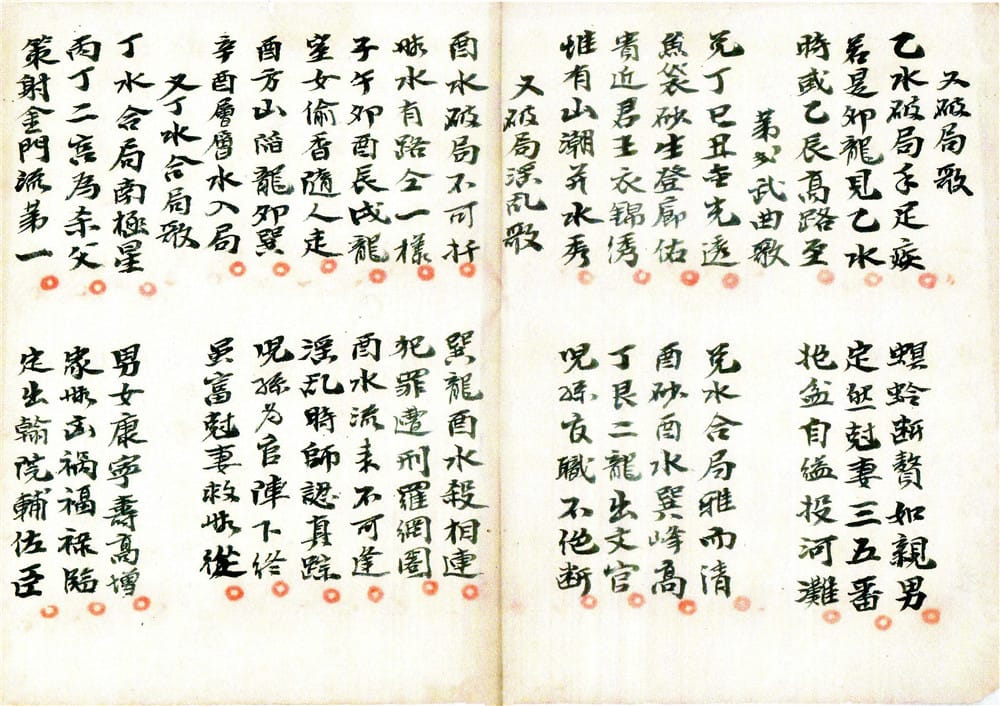 又破局歌
乙水破局手足疾 螟蛉断贅如親男
若是卯龍見乙水 定然尅妻三五番
時或乙辰高路至 抱盆自縊投河灘
第弍武曲歌
兌丁巳丑光 兌水合局雅而清
魚袋砂生登廊佑 酉砂酉水巽峰高
貴近君王衣錦绣 丁艮二龍出文官
惟有山潮并水秀 兒孫官職不断
又破局淫乱歌
酉水破局不可扦 巽龍酉水殺相連
坎水有路仝一樣 犯罪遭刑羅網圈
子午卯酉辰戌龍 酉水流来不可逢
室女偷香隨人走 淫乱時師認真踪
酉方山陷龍卯巽 兒孫为官陣下終
辛酉層層水入局 富尅妻救從
又丁水合局歌
丁水合局南極星 男女康寧壽高增
丙丁二宮為父 家凶禍福禄臨
策射金門流第一 定出翰院輔佐臣